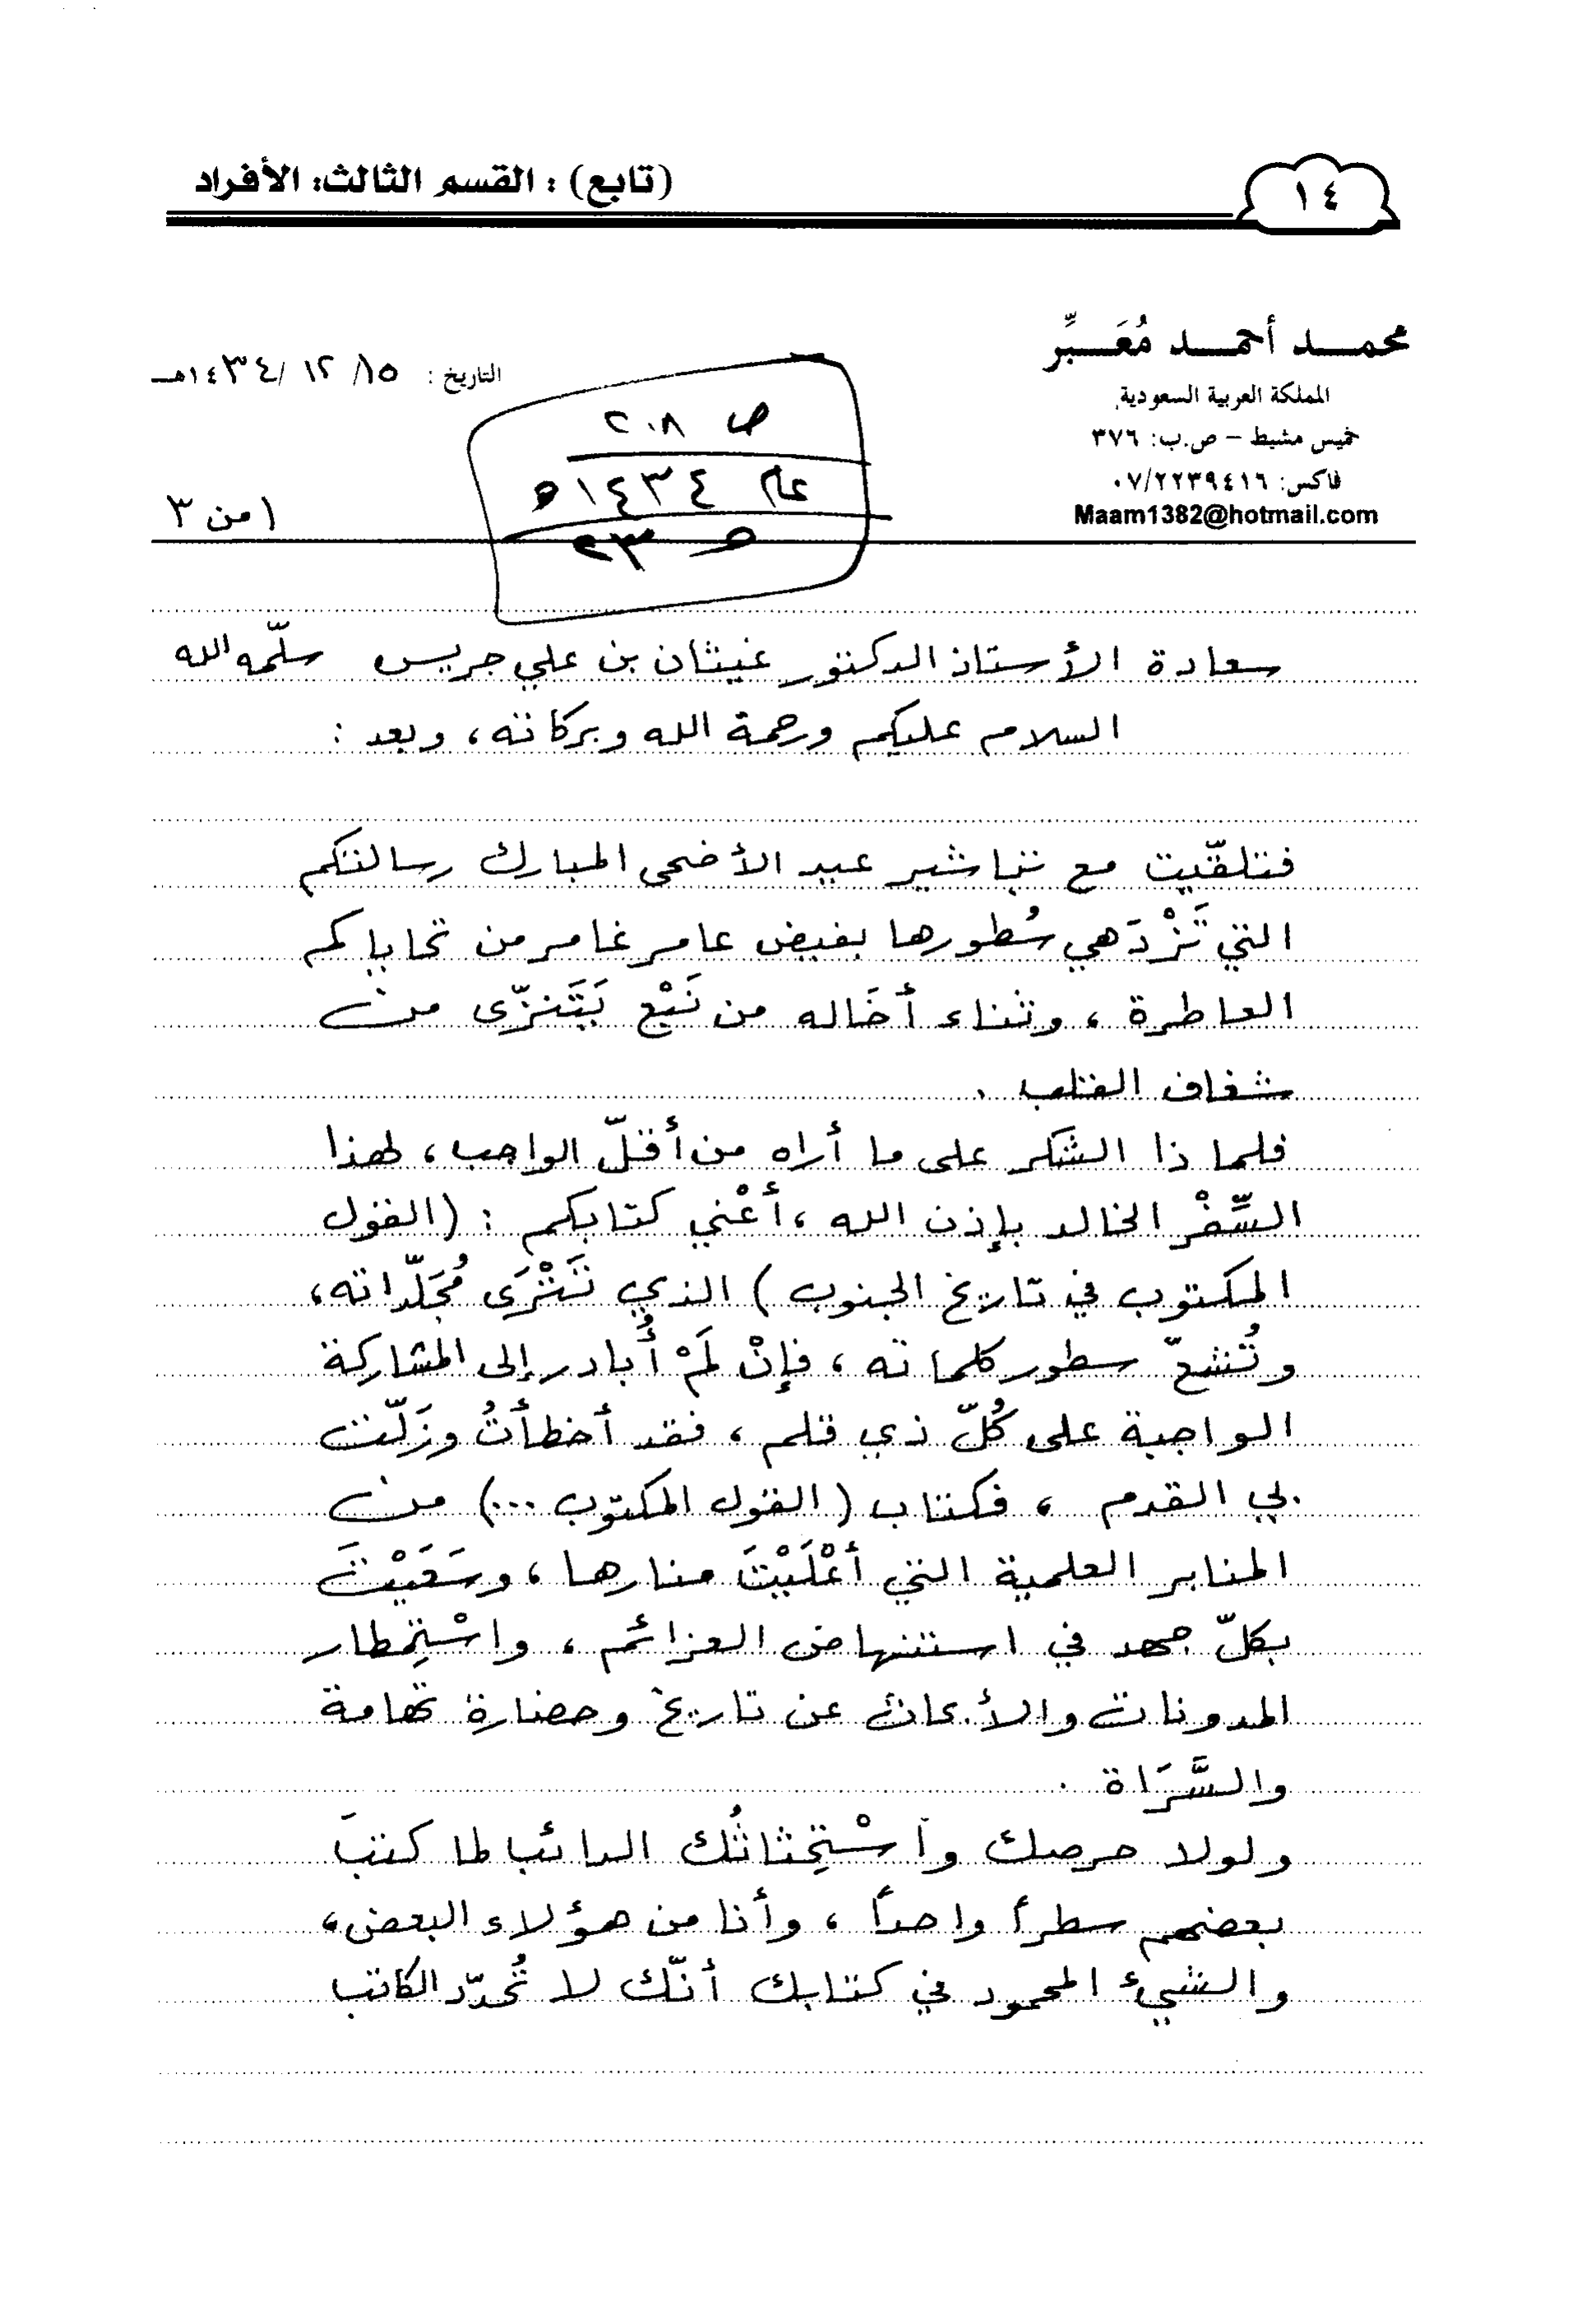 ١٤
(تابع) : القسم الثالث: الأفراد
محمد أحمد مُعَبِّر
المملكة العربية السعودية
خميس مشيط – ص.ب: ٣٧٦
فاكس: ٠٧/٢٢٣٩٤١٦
Maam1382@hotmail.com
التاريخ : ١٥/ ١٢ /١٤٣٤هـ
١ من ٣
ص ٢٠٨
عام ١٤٣٤ه
سعادة الأستاذ الدكتور غيثان بن علي جريس سلّمه الله
السلام عليكم ورحمة الله وبركاته، وبعد :
فتلقّيت مع تباشير عيد الأضحى المبارك رسالتكم
التي تَزْدَهي سُطورها بفيض عامر غامر من تحاياكم
العاطرة ، وثناء أخَاله من نَبْع يَتَنزّى من
شغاف القلب .
فلماذا الشكر على ما أراه من أقلّ الواجب، لهذا
السِّفْر الخالد بإذن الله ، أعْني كتابكم : (القول
المكتوب في تاريخ الجنوب ) الذي تَتْرَى مُجَلّداته،
وتُشعّ سطور كلماته ، فإنْ لَمْ أُبادر إلى المشاركة
الواجبة على كُلّ ذي قلم ، فقد أخطأتُ وزَلّت
بي القدم ، فكتاب ( القول المكتوب ...) من
المنابر العلمية التي أعْلَيْتَ منارها ، وسَعَيْتَ
بكلّ جهد في استنهاض العزائم ، واسْتِمطار
المدونات والأبحاث عن تاريخ وحضارة تهامة
والسَّرَاة .
ولولا حرصك واسْتِحْثاثُك الدائب لما كتبَ
بعضهم سطراً واحداً ، وأنا من هؤلاء البعض ،
والشيء المحمود في كتابك أنّك لا تُحدّد الكاتب